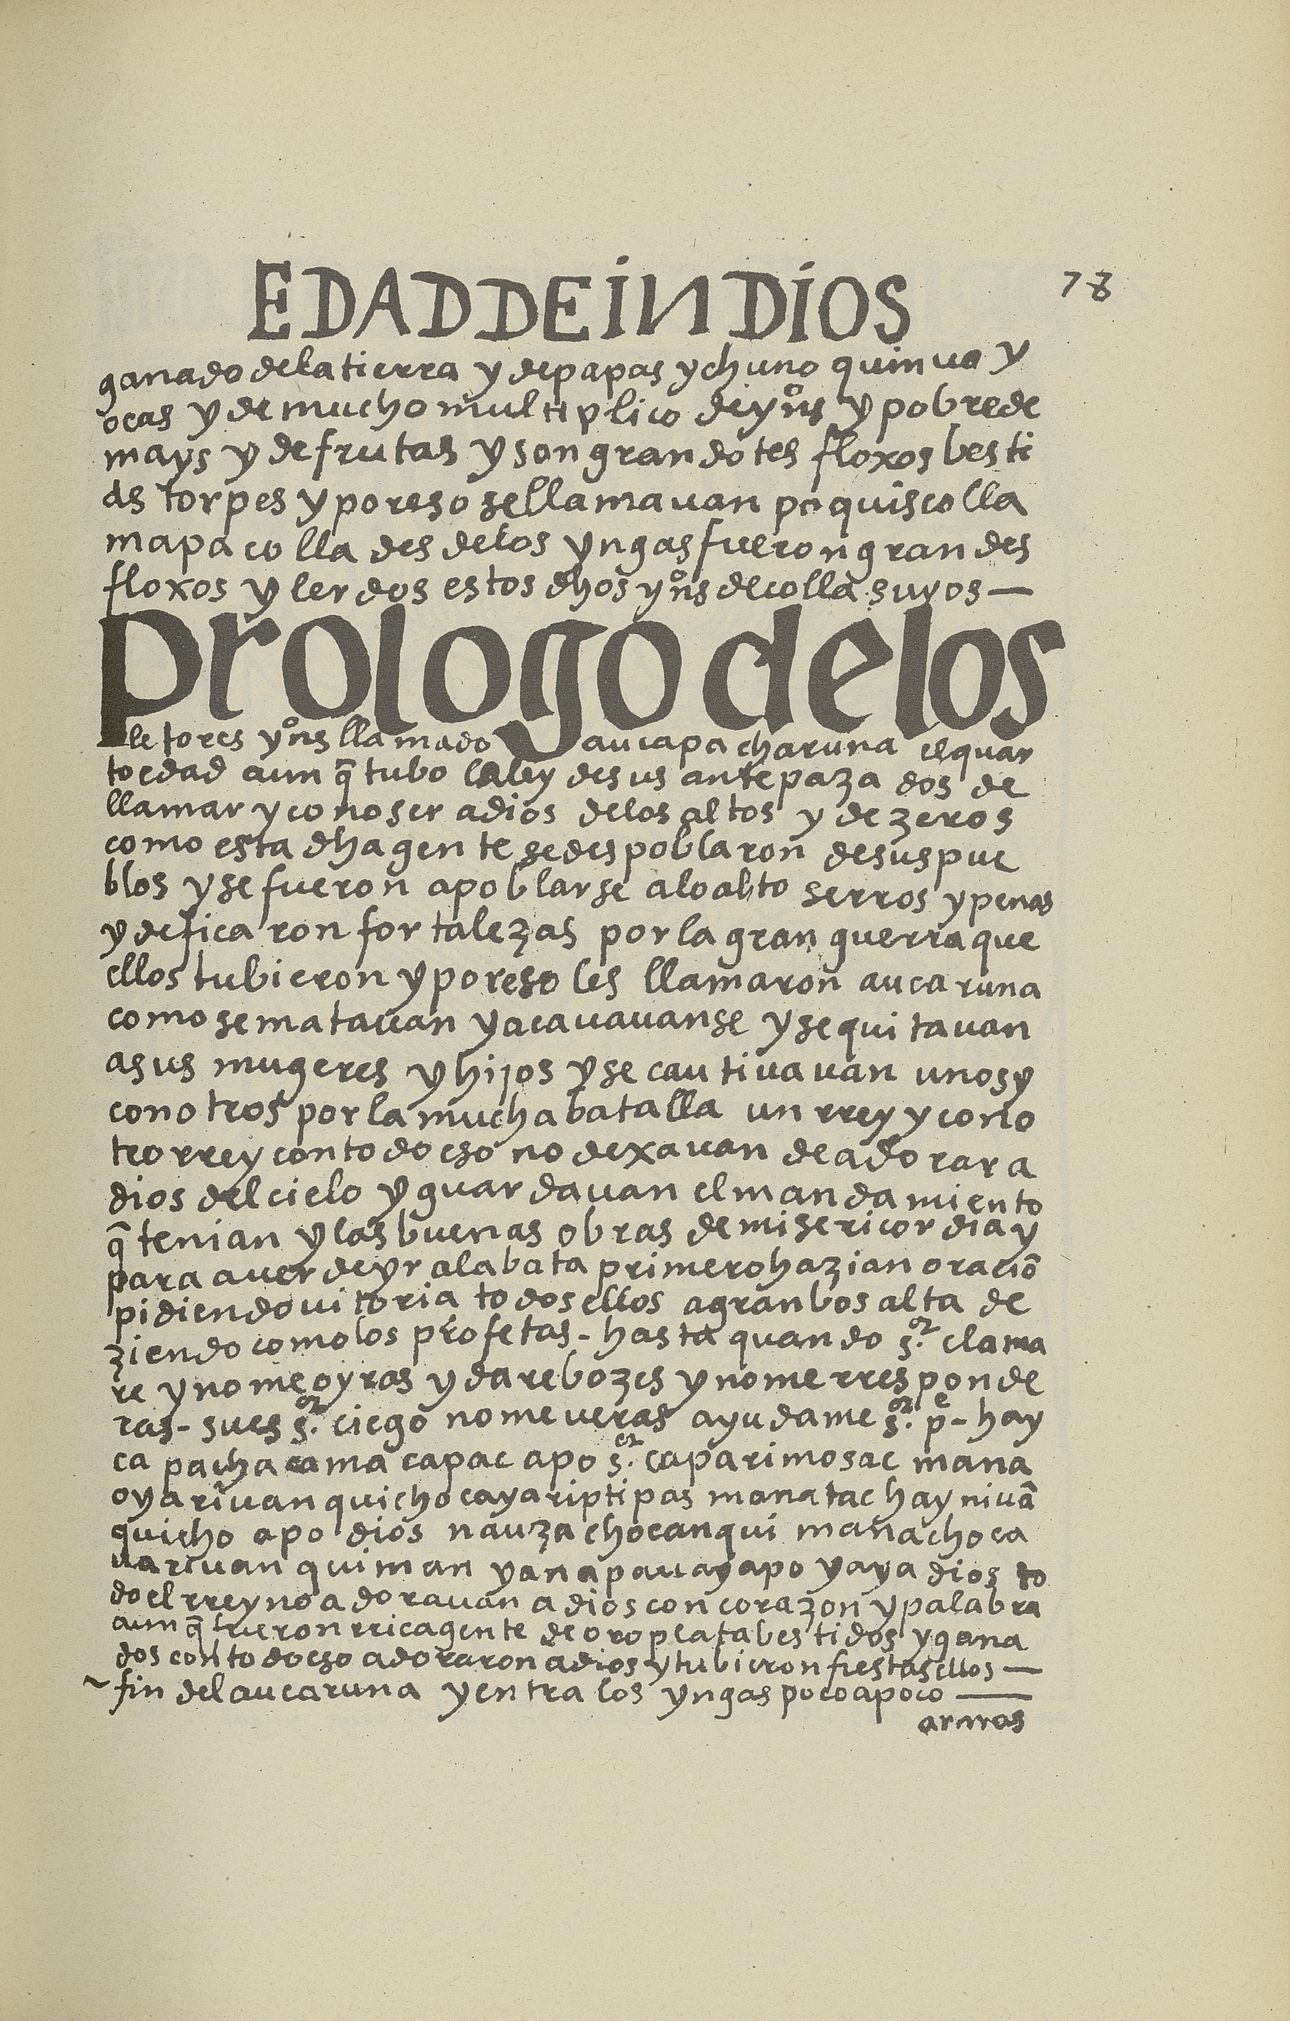 EDAD DE INDIOS
78
ganado de la tierra y de papas y chuno quinua y
ocas y de mucho multiplico de yn̊s y pobre de
mays y de frutas y son grandotes floxos besti
as torpes y por eso se llamauan poquis colla
mapa colla desde los yngas fueron grandes
floxos y lerdos estos dhos yn̊s de collasuyos —
Prologo de los
letores yn̊s llamado aucapacha runa el quar
to edad aunq̃ tubo la ley de sus antepazados de
llamar y conoser a dios de los altos y dezeros
como esta dha gente se despoblaron de sus pue
blos y se fueron a poblarse a lo alto serros y penas
y deficaron fortalezas por la gran guerra que
ellos tubieron y por eso les llamaron auca runa
como se matauan y acauauanse y se quitauan
a sus mugeres y hijos y se cautiuauan unos y
con otros por la mucha batalla un rrey y con o
tro rrey con todo eso no dexauan de adorar a
dios del cielo y guardauan el mandamiento
q̃ tenian y las buenas obras de misericordia y
para auer de yr a la batata primero hazian oraciõ
pidiendo uitoria todos ellos a gran bos alta de
ziendo como los profetas - hasta quando s.or clama
re y no me oyras y dare bozes y no me rresponde
ras - sues s.or ciego no me ueras ayudame s.or p.e - hay
ca pachacama capac apo s.or caparimosac mana
oyariuanquicho cayariptipas manatac hayniuã
quicho apo dios nauzacho canqui manacho ca
uariuanquiman yanapauay apo yaya dios to
do el rreyno adorauan a dios con corazon y palabra
aunq̃ fueron rrica gente de oro plata bestidos y gana
dos con todo eso adoraron a dios y tubieron fiestas ellos —
~ fin del aucaruna y entra los yngas poco a poco —
armas